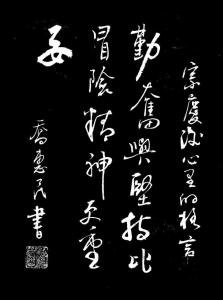 宗庆后心里的格言
勤奋与坚持比
冒险精神更重
要
乔惠民书